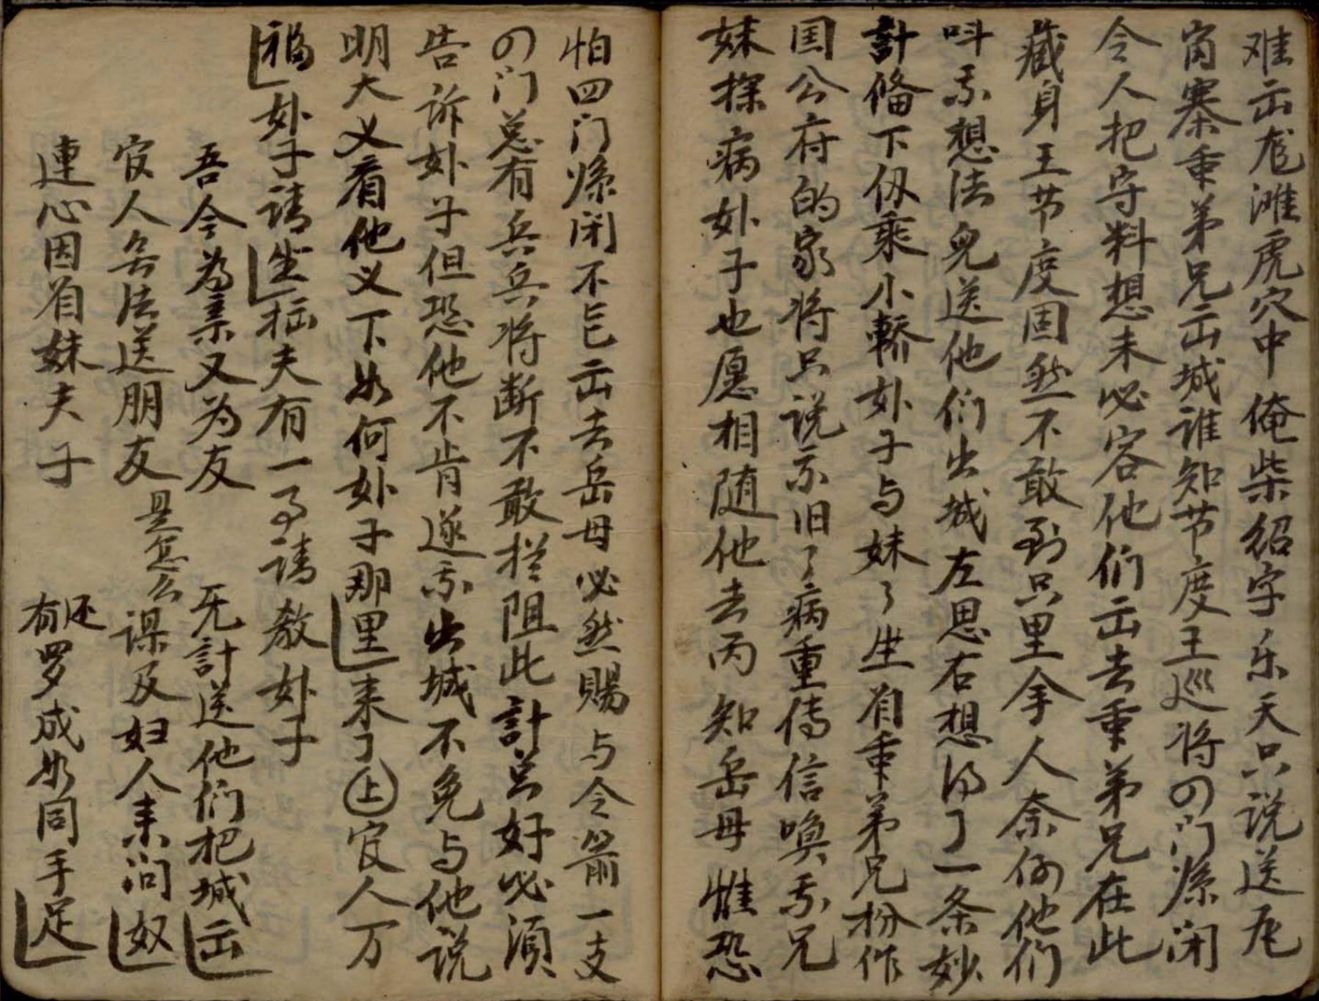 难出龙滩虎穴中俺柴绍字乐天只说送尾
肯寨重弟兄出城谁知节度王巡将四门紧闭
令人把守料想未必容他们出去重弟兄在此
藏身王节度固然不敢到只里拿人奈何他们
呌我想法儿送他们出城左思右想得了一条妙
計俻下份乘小轎妙子与妹了坐有重弟兄扮作
国公府的家将只说我旧了病重传信唤我兄
妹探病妙子也愿相随他去丙知岳母惟恐
怕四门紧闭不能出去岳母必然赐与令箭一支
四门总有兵兵将断不敢拦阻此計只好必須
告诉妙子但恐他不肯遂我出城不免与他说
明大义看他义下如何妙子那里来了上官人万
福妙子请坐拙夫有一事请教妙子
吾今为亲又为友 无計送他们把城出
官人无法送朋友 是怎么谋及妇人来问奴
連心因有妹夫子 还有罗成如同手足